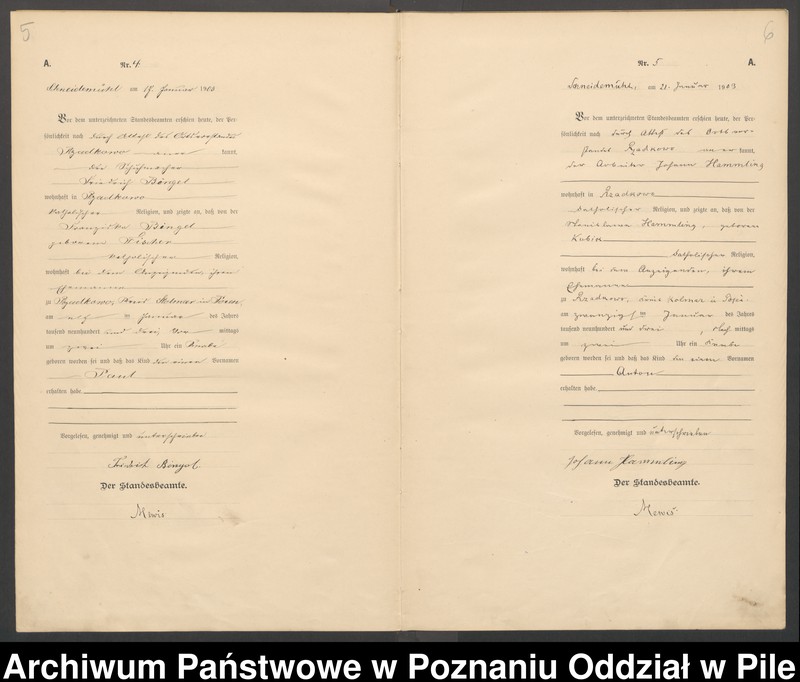 5
A.
Nr. 4.
Schneidemühl am 17. Januar 1903
Vor dem unterzeichneten Standesbeamten erschien heute, der Per-
sönlichkeit nach durch Attest des
kannt,
der Schuhmacher
Friedrich Böngel
wohnhaft in
katholischer Religion, und zeigte an, daß von der
Franziska Böngel
geborenen Fischer
katholischer Religion,
wohnhaft bei dem Anzeigenden, ihrem
Ehemanne
zu Kreis Kolmar in Posen,
am elf ten Januar des Jahres
tausend neunhundert und drei Vor mittags
um zwei Uhr ein Knabe
geboren worden sei und daß das Kind den einen Vornamen
Paul
erhalten habe
Vorgelesen, genehmigt und unterschrieben
Friedrich Böngel.
Der Standesbeamte.
Mewis
6
Nr. 5
A.
Schneidemühl, am 21. Januar 1903
Vor dem unterzeichneten Standesbeamten erschien heute, der Per-
sönlichkeit nach durch Attest des Ortsvor-
stands Rzadkowo kannt,
der Arbeiter Johann Hemmling
wohnhaft in Rzadkowo
katholischer Religion, und zeigte an, daß von der
Stanislawa Hemmling, geborenen
Kubik
katholischer Religion,
wohnhaft bei dem Anzeigenden, ihrem
Ehemanne
zu Rzadkowo, Kreis Kolmar in
am ten Januar des Jahres
tausend neunhundert und drei, Nach mittags
um zwei Uhr ein Knabe
geboren worden sei und daß das Kind den einen Vornamen
Anton
erhalten habe
Vorgelesen, genehmigt und unterschrieben
Johann Hammling
Der Standesbeamte.
Mewis
Archiwum Państwowe w Poznaniu Oddział w Pile